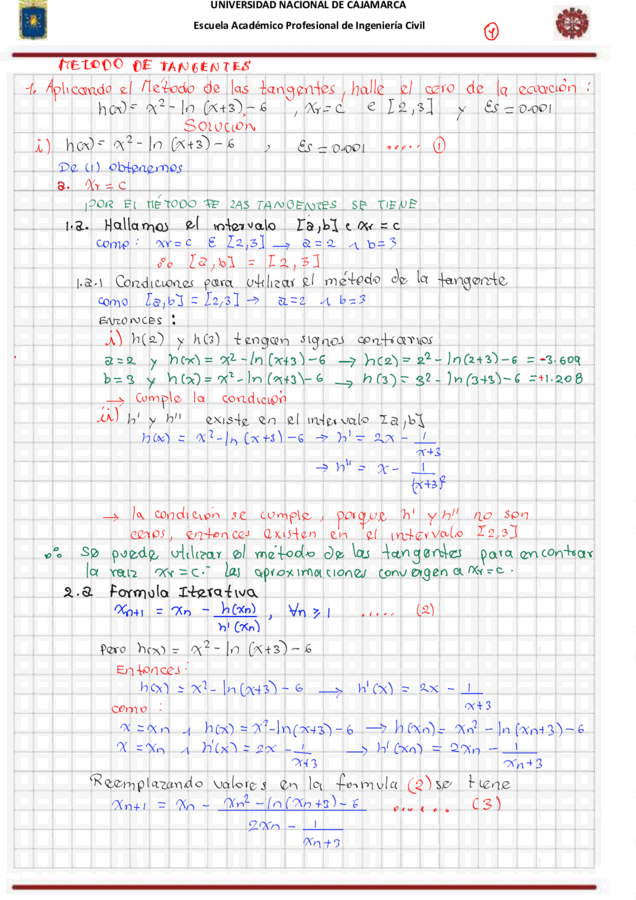 UNIVERSIDAD NACIONAL DE CAJAMARCA
Escuela Académico Profesional de Ingeniería Civil
METODO DE TANGENTES
1. Aplicando el Método de las tangentes, halle el cero de la ecuación :
h(x) = x² - ln (x+3) - 6 , Xr=c ∈ [2,3] y Es = 0.001
SOLUCIÓN
i) h(x) = x² - ln (x+3) - 6 , Es = 0.001 ..... (1)
De (1) obtenemos
a. Xr = c
¡POR EL METODO DE LAS TANGENTES SE TIENE
1.a. Hallamos el intervalo [a,b] ∈ xr = c
como : xr = c ∈ [2,3] → a=2 ∧ b=3
∴ [a,b] = [2,3]
1.a.1 Condiciones para utilizar el método de la tangente
como [a,b] = [2,3] → a=2 ∧ b=3
ENTONCES :
i) h(2) y h(3) tengan signos contrarios
a=2 y h(x) = x² - ln(x+3) - 6 → h(2) = 2² - ln(2+3) - 6 = -3.609
b=3 y h(x) = x² - ln(x+3) - 6 → h(3) = 3² - ln(3+3) - 6 = +1.208
→ Cumple la condición
ii) h' y h'' existe en el intervalo [a,b]
h(x) = x² - ln (x+3) - 6 → h' = 2x - 1/(x+3)
→ h'' = x - 1/(x+3)²
→ la condición se cumple, porque h' y h'' no son
ceros, entonces existen en el intervalo [2,3]
∴ se puede utilizar el método de las tangentes para encontrar
la raíz xr = c. las aproximaciones convergen a xr = c .
2.a Formula Iterativa
xn+1 = xn - h(xn)/h'(xn) , ∀n ≥ 1 ..... (2)
Pero h(x) = x² - ln (x+3) - 6
Entonces:
h(x) = x² - ln (x+3) - 6 → h'(x) = 2x - 1/(x+3)
como :
x = xn ∧ h(x) = x² - ln(x+3) - 6 → h(xn) = xn² - ln (xn+3) - 6
x = xn ∧ h'(x) = 2x - 1/(x+3) → h'(xn) = 2xn - 1/(xn+3)
Reemplazando valores en la formula (2) se tiene
xn+1 = xn - (xn² - ln(xn+3) - 6)/(2xn - 1/(xn+3)) ....... (3)